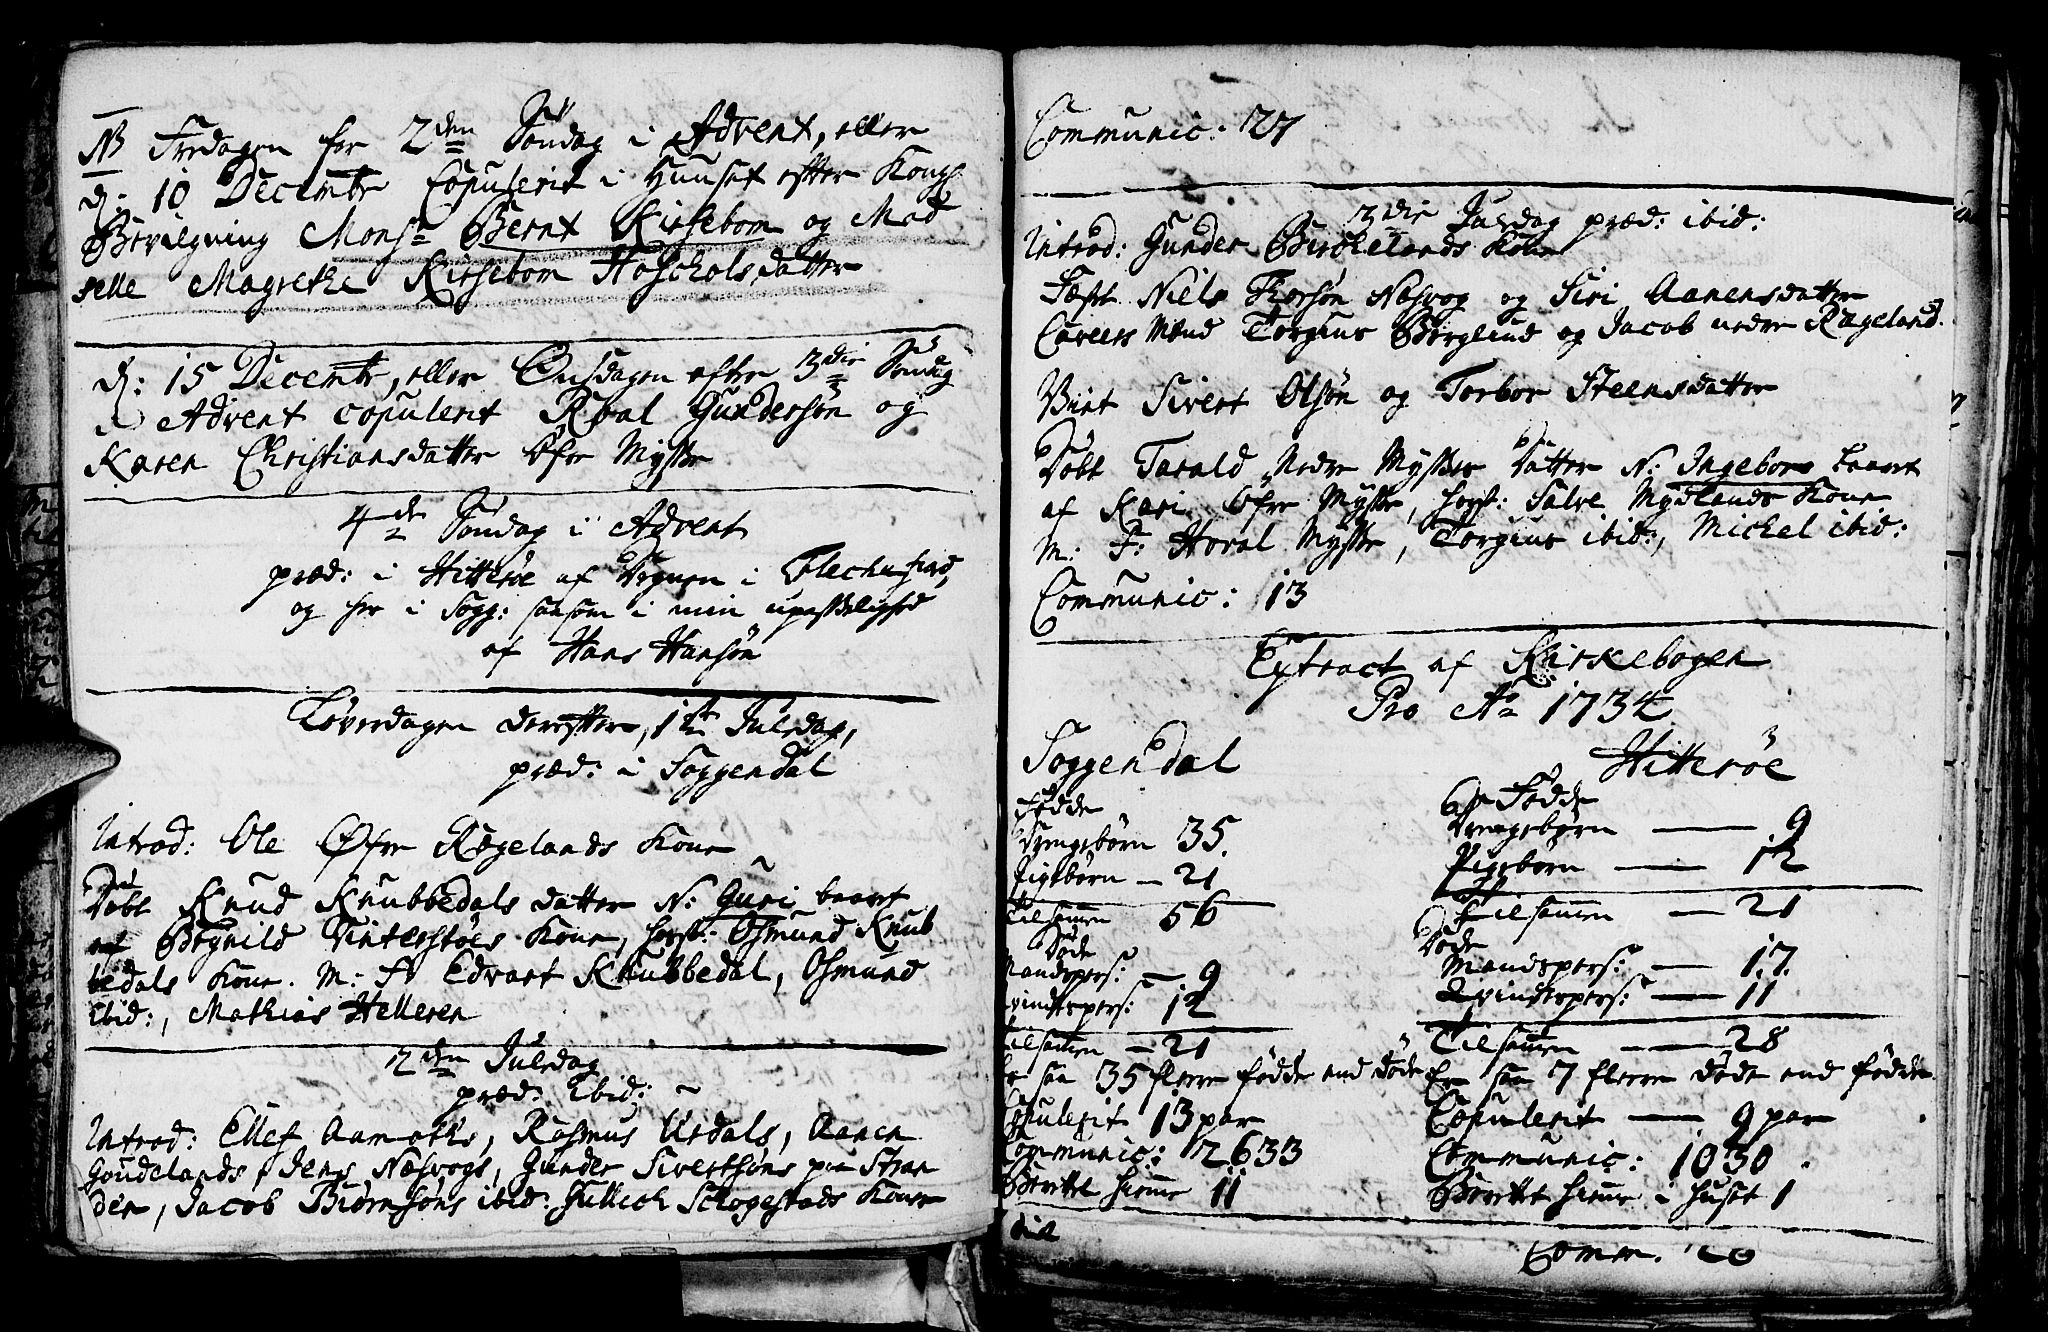 NB Fredagen for 2den Søndag i Advent, eller
d: 10 Decembr Copulerit i Huuset efter Kongl
Bevilgning Monsr Bernt Kirsebom og Mad
selle Magrethe Kirsebom Hoscholsdatter
d: 15 Decembr, eller Onsdagen efter 3die Søndag
i Advent copulerit Roal Gundersøn og
Karen Christiansdatter Øfre Mysse
4de Søndag i Advent
præd: i Hitterøe af Vognen i Flechefiord,
og her i Sogg: saasom i min upasselighed
af Hans Hansøn
Løverdagen derefter, 1ste Juledag,
præd: i Soggendal
Introd: Ole Øfre Rægelands Kone
Døbt Knud Knubbedals datter N: Guri baaret
af Bognild Vinterstøes Kone, hosst: Osmund Knub
bedals Kone. M: F: Edvart Knubbedal, Osmund
ibid:, Mathias Helleren
2den Juledag
præd: Ibid:
Introd: Ellef Aamotts, Rasmus Urdals, Aanen
Goudelands, Jens Næsvogs, Gunder Sivertsøns paa Stran
den, Jacob Biørnsøns ibid: Gullich Schogestads Koner
Communic: 27
3die Juledag præd: ibid:
Introd: Gunder Birchelands Kone
Fæst Niels Thorsøn Næsvog og Siri Aanensdatter
Caveers Mænd Torgius Bergliud og Jacob nedre Rægeland.
Viet Sivert Olsøn og Torbor Steensdatter
Døbt Tarald Nedre Mysses Datter N: Ingebor baaret
af Kari Øfre Mysse, hosst: Salve Mydlands Kone
M: F: Horal Mysse, Torgius ibid:, Michel ibid:
Communic: 13
Extract af Kirkebogen
Pro Ao 1734
Soggendal
Fødde
Drengebørn 35.
Pigebørn - 21
Tilsamen 56
Døde
Mandspers: - 9
Qvindespers: 12
Tilsamen - 21
Er saa 35 flere fødde end døde
Copulerit 13 par
Communic: 2633
Berettet hiemme 11
Hitterøe
Fødde
Drengebørn - 9
Pigebørn - 12
Tilsamen - 21
Døde
Mandspers: - 17.
Qvindespers: - 11
Tilsamen - 28
Er saa 7 flere døde end fødde.
Copulerit - 9 par
Communic: 1030.
Berettet hieme i Huset 1
Comm. 20